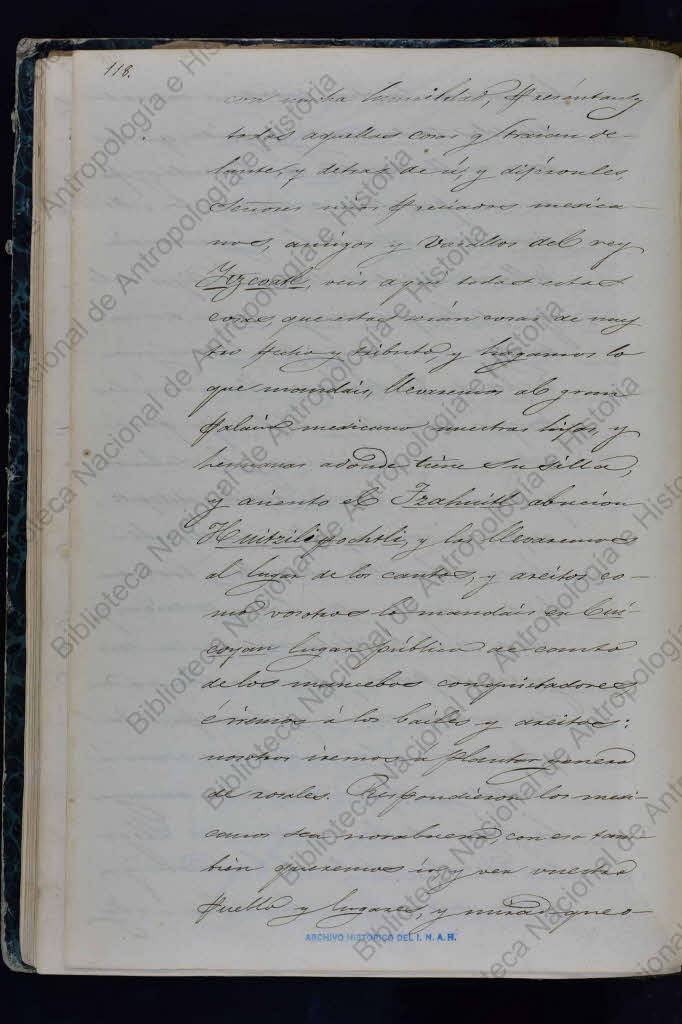 118.
con mucha humildad, presentando
todas aquellas cosas q<sup>e</sup> traian de-
lante, y detras de si, y diferentes,
Señores
mexica-
nos, amigos y vasallos del rey
Itzcoatl, veis aqui todas estas
cosas, que estas serán cosas de nues
tro pecho y tributo y hagamos lo
que mandais, llevaremos al gran
palacio mexicano nuestras hijas, y
hermanas adonde tiene su silla,
y asiento el Tzahuitl abucion
Huitzilipochtli, y las llevaremos
al lugar de los cantos, y areitos co-
mo vosotros lo mandais en Cui-
coyan lugar público de canto
de los mancebos conquistadores
é iremos á los bailes y areitos:
nosotros iremos a plantar genero
de rosales. Respondieron los mexi-
canos sea norabuena, con eso tam-
bién queremos ir, y ver vuestro
pueblo y lugares, y mirad que o-
ARCHIVO HISTORICO DEL I. N. A. H.
Biblioteca Nacional de Antropología e Historia